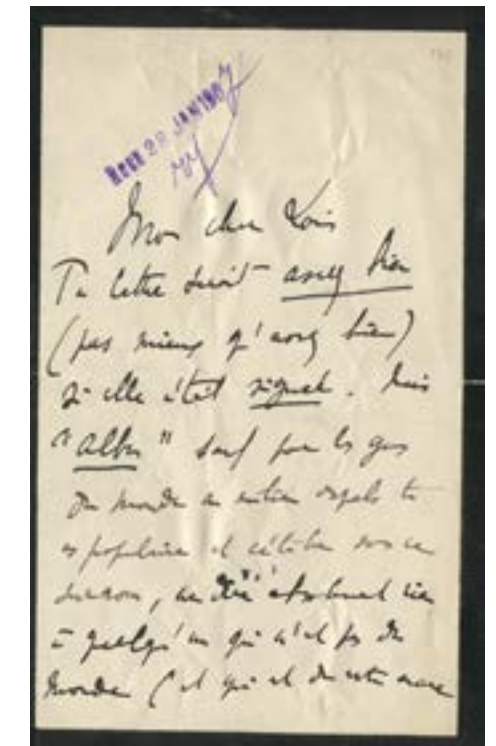 Reçu 28 JAN 1907
Mon cher Louis
Ta lettre serait assez bien
(pas mieux qu'assez bien)
si elle était signée. Mais
"Albu" sauf pour les gens
du monde au milieu desquels tu
es populaire et célèbre sous ce
, ne dira absolument rien
à quelqu'un qui n'est pas du
monde (et qui est du reste